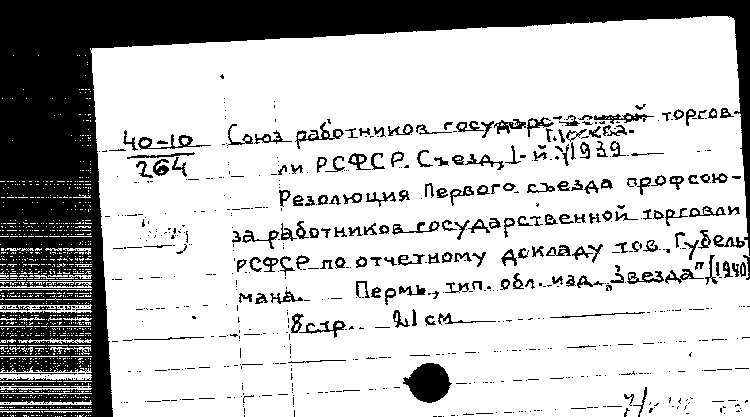 40-10
264
Союз работников государственной торгов-
Москва.
ли РСФСР. Съезд, 1-й. 1939.
Резолюция Первого съезда профсою-
за работников государственной торговли
РСФСР по отчетному докладу тов. Губель-
мана. Пермь, тип. обл. изд. „Звезда", [1940]
8 стр. 21 см.